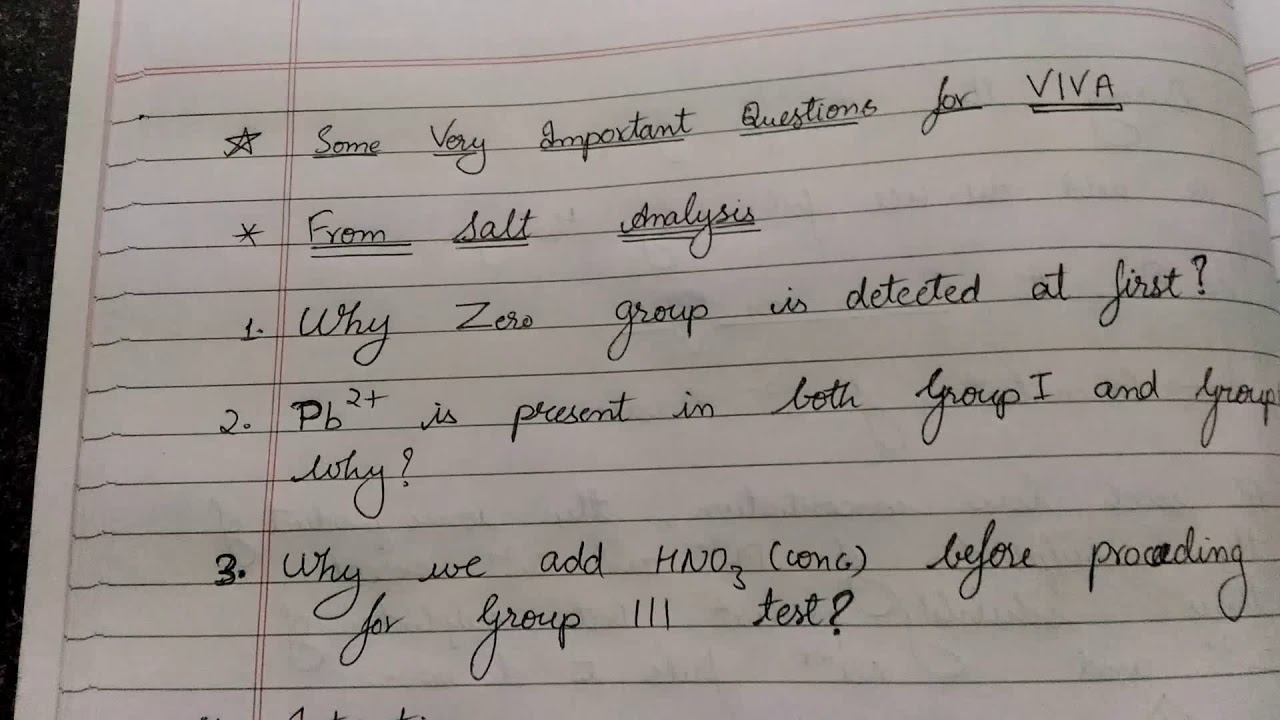 ☆ Some Very Important Questions for VIVA
* From Salt Analysis
1. Why Zero group is detected at first?
2. Pb²⁺ is present in both Group I and Group
why?
3. Why we add HNO₃ (conc) before proceeding
for Group III test?